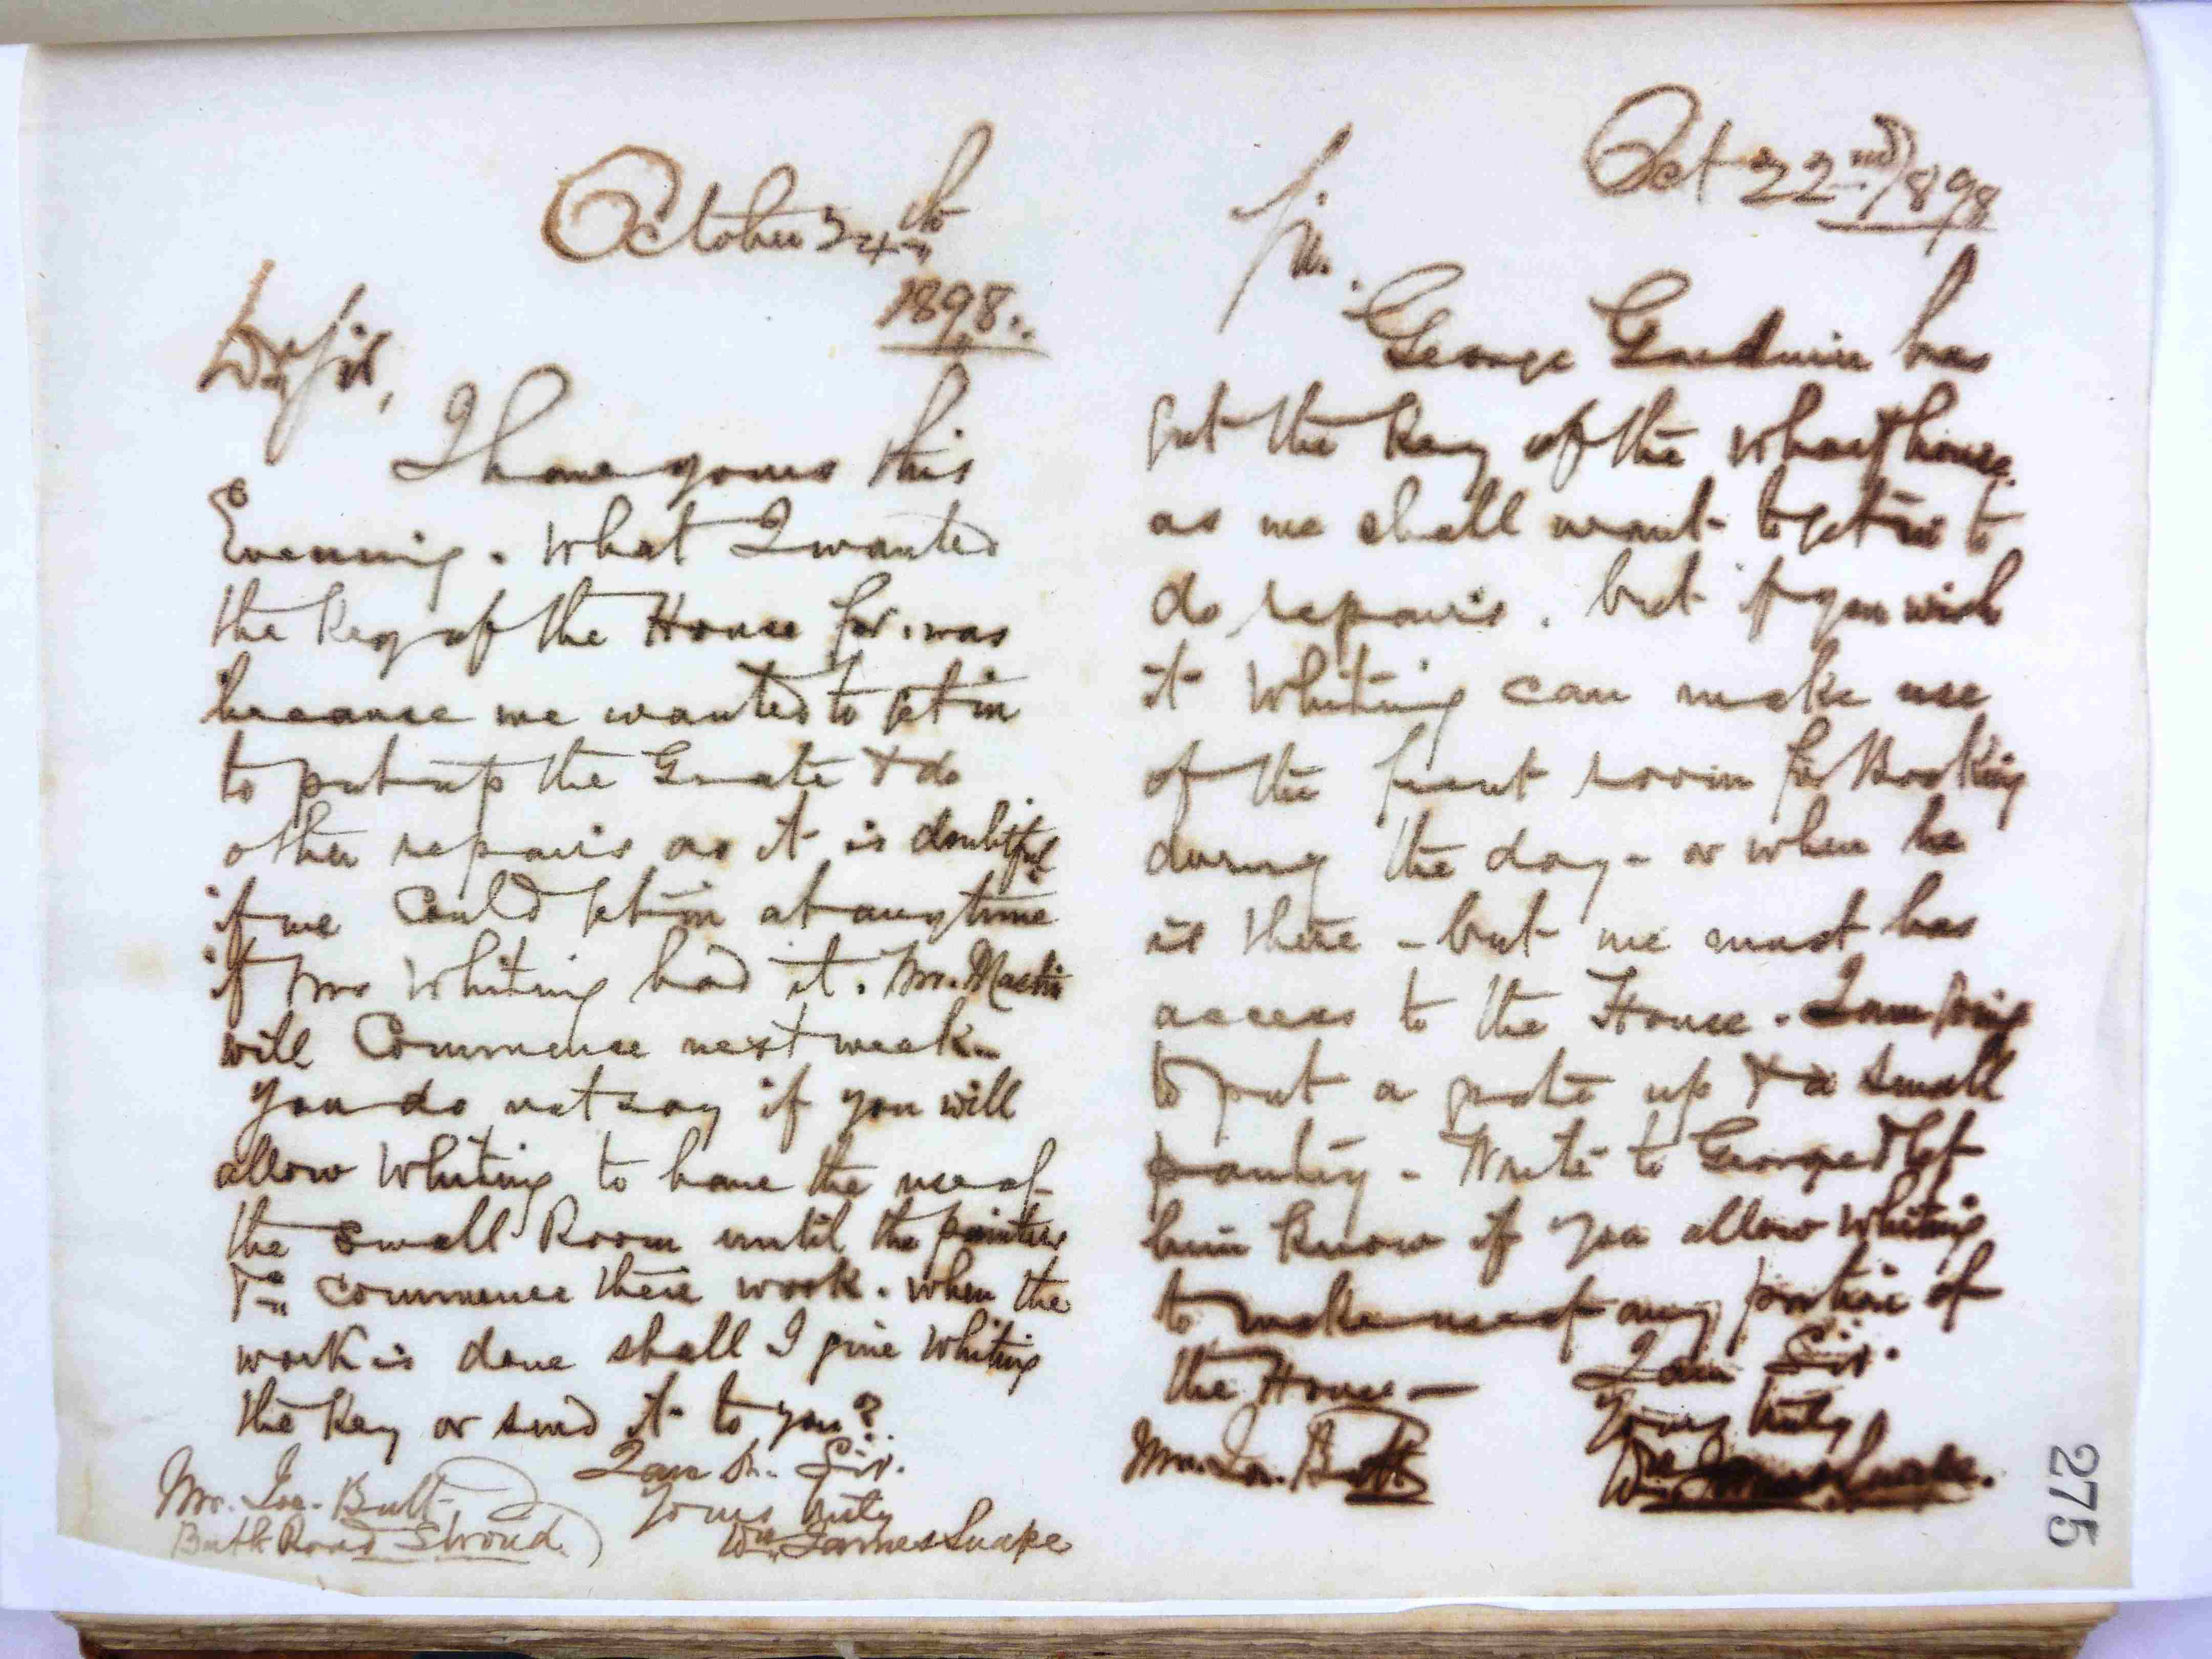 October 24th
1898.
Dr Sir,
I have yours this
Evening. What I wanted
the key of the House for. was
because we wanted to get in
to put up the Grate & do
other repairs as it is doubtful
if we Could get in at any time
if Mrs Whiting had it. Mr. Martin
will Commence next week-
you do not say if you will
allow Whiting to have the use of
the Small Room until the painters
commence there work. when the
work is done shall I give Whiting
the key or send it to you?
I am Dr. Sir.
Yours truly
Wm James Snape
Mr. Jos. Butt
Bath Road Stroud
Oct 22nd/1898
Sir.
George Goodwin has
got the key of the wharf house.
as we shall want to get in to
do repairs. but if you wish
it Whiting can make use
of the front room for Booking
during the day - or when he
is there - but we must has
access to the House. I am going
to put a grate up & a small
pantry - Write to George & let
him know if you allow Whiting
to make use of any portion of
the House -
I am Sir.
Yours truly
Wm James Snape.
Mr. Jos. Butt
275